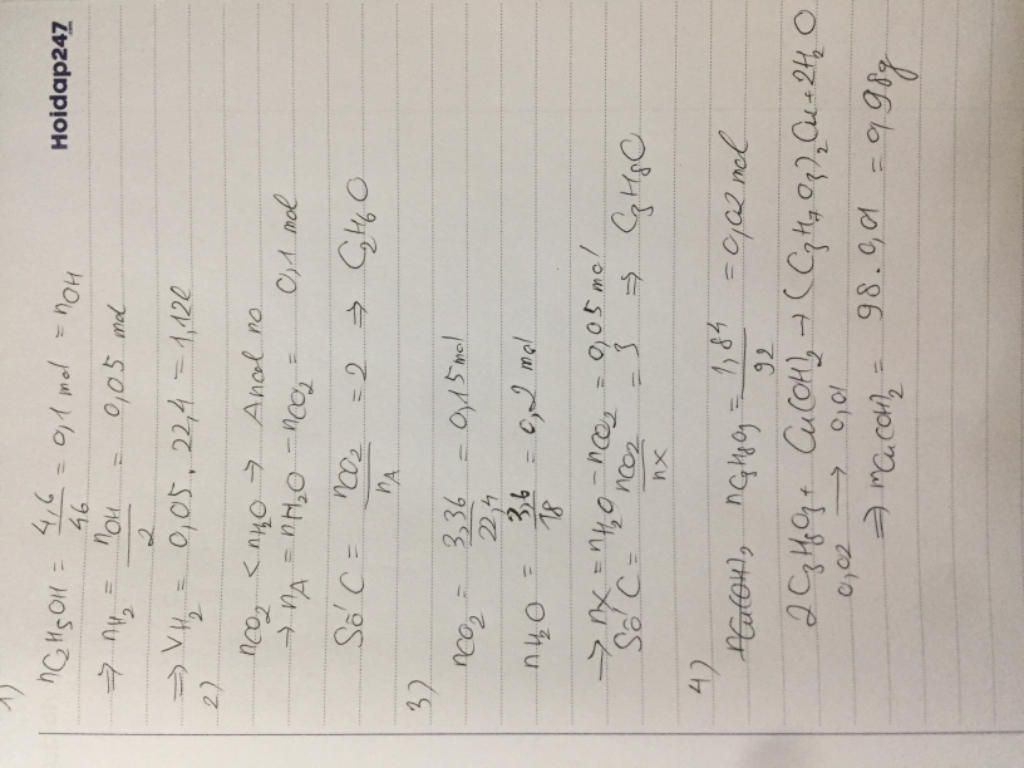 Hoidap247
1)
nC₂H₅OH = 4,6/46 = 0,1 mol = nOH
⇒ nH₂ = nOH/2 = 0,05 mol
⇒ VH₂ = 0,05 . 22,4 = 1,12l
2)
nCO₂ < nH₂O → Ancol no
→ nA = nH₂O - nCO₂ = 0,1 mol
Số C = nCO₂/nA = 2 ⇒ C₂H₆O
3)
nCO₂ = 3,36/22,4 = 0,15 mol
nH₂O = 3,6/18 = 0,2 mol
→ nX = nH₂O - nCO₂ = 0,05 mol
Số C = nCO₂/nX = 3 ⇒ C₃H₈O
4)
nC₃H₈O₃ = 1,84/92 = 0,02 mol
2C₃H₈O₃ + Cu(OH)₂ → (C₃H₇O₃)₂Cu + 2H₂O
0,02 → 0,01
⇒ mCu(OH)₂ = 98 . 0,01 = 0,98g